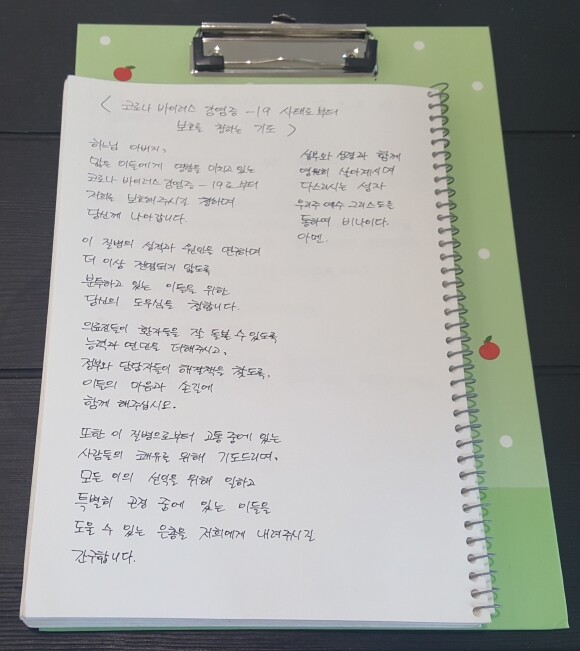 < 코로나 바이러스 감염증 -19 사태로부터
보호를 청하는 기도 >
하느님 아버지,
많은 이들에게 영향을 미치고 있는
코로나 바이러스 감염증 -19로부터
저희를 보호해주시길 청하며
당신께 나아갑니다.
이 질병의 성격과 원인을 연구하며
더 이상 전염되지 않도록
분투하고 있는 이들을 위한
당신의 도우심을 청합니다.
의료진들이 환자들을 잘 돌볼 수 있도록
능력과 연민을 더해주시고,
정부와 담당자들이 해결책을 찾도록,
이들의 마음과 손길에
함께 해주십시오.
또한 이 질병으로부터 고통 중에 있는
사람들의 쾌유를 위해 기도드리며,
모든 이의 선익을 위해 일하고
특별히 곤경 중에 있는 이들을
도울 수 있는 은총을 저희에게 내려주시길
간구합니다.
성부와 성령과 함께
영원히 살아계시며
다스리시는 성자
우리주 예수 그리스도를
통하여 비나이다.
아멘.